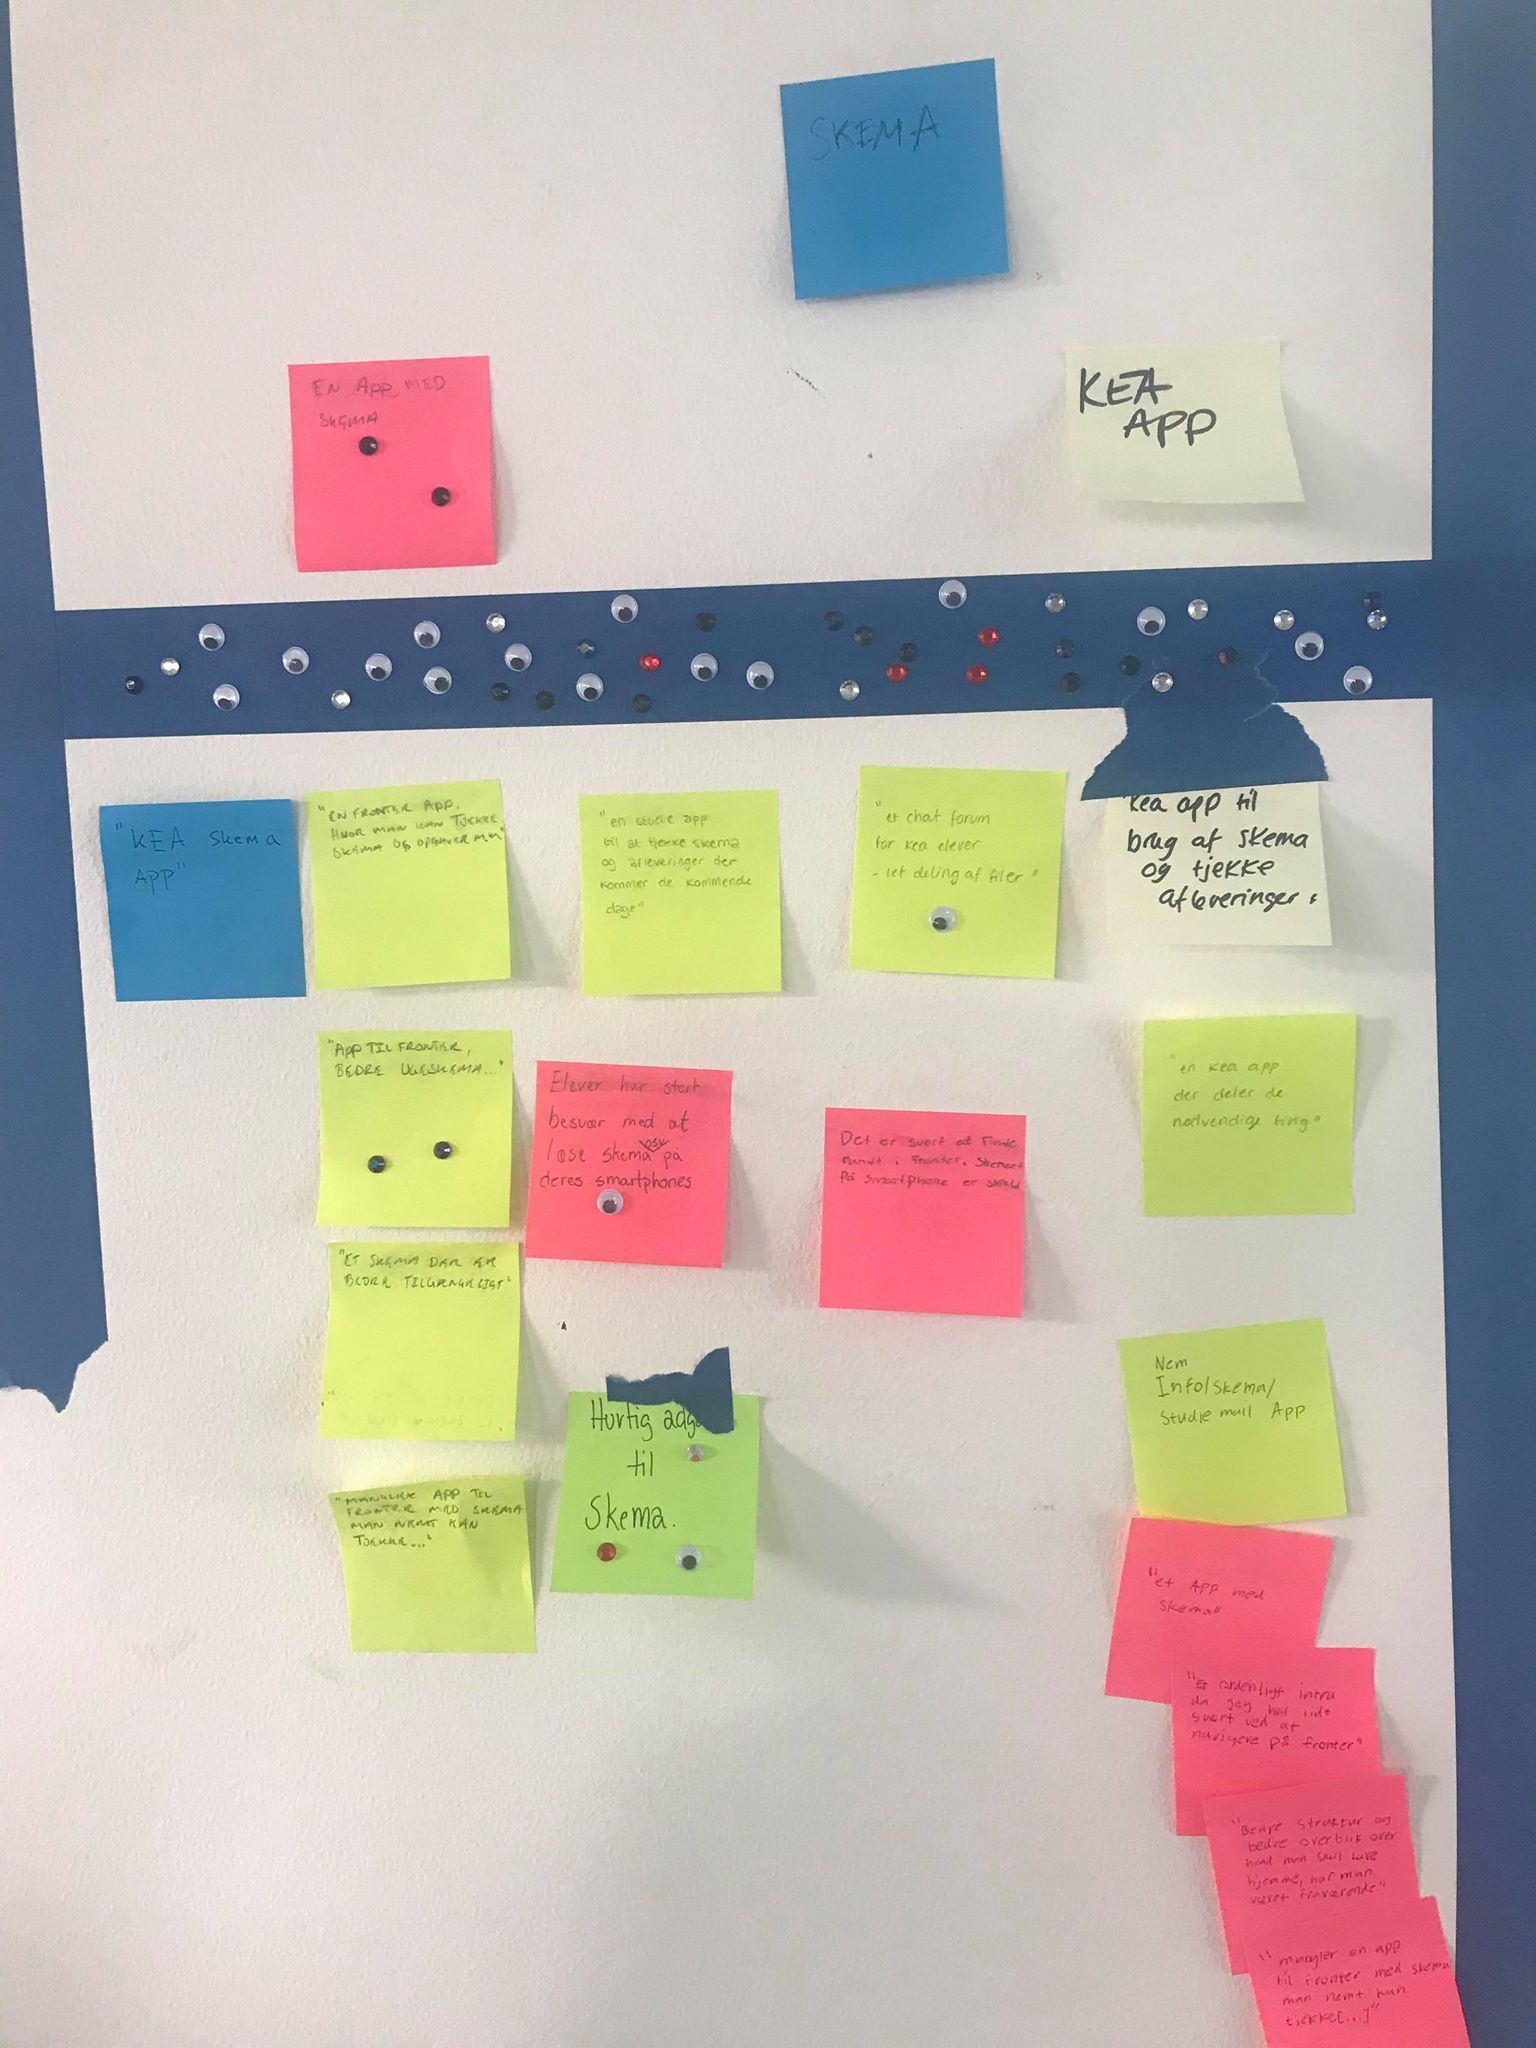 SKEMA
EN APP MED
SKEMA
KEA
APP
"KEA Skema
APP"
"EN FRONTER APP,
HVOR MAN KAN TJEKKE
SKEMA OG OPGAVER M.M"
"en studie app
til at tjekke skema
og afleveringer der
kommer de kommende
dage"
"et chat forum
for kea elever
- let deling af filer"
"Kea app til
brug af skema
og tjekke
afleveringer"
"APP TIL FRONTER,
BEDRE UGESKEMA..."
Elever har stort
besvær med at
læse skema osv på
deres smartphones
Det er svært at finde
rundt i Fronter. Skemaet
på smartphone er
"en kea app
der deler de
nødvendige ting"
"ET SKEMA DER ER
BEDRE TILGÆNGELIGT"
Hurtig adg
til
Skema.
Nem
Info/skema/
Studie mail App
"MANGLER APP TIL
FRONTER MED SKEMA
MAN NEMT KAN
TJEKKE..."
"et APP med
skema"
"Et ordenligt intra
da jeg har lidt
svært ved at
navigere på fronter"
"Bedre struktur og
bedre overblik over
hvad man skal lave
hjemme, når man
været fraværende"
"mangler en app
til fronter med skema
man nemt kan
tjekke[...]"